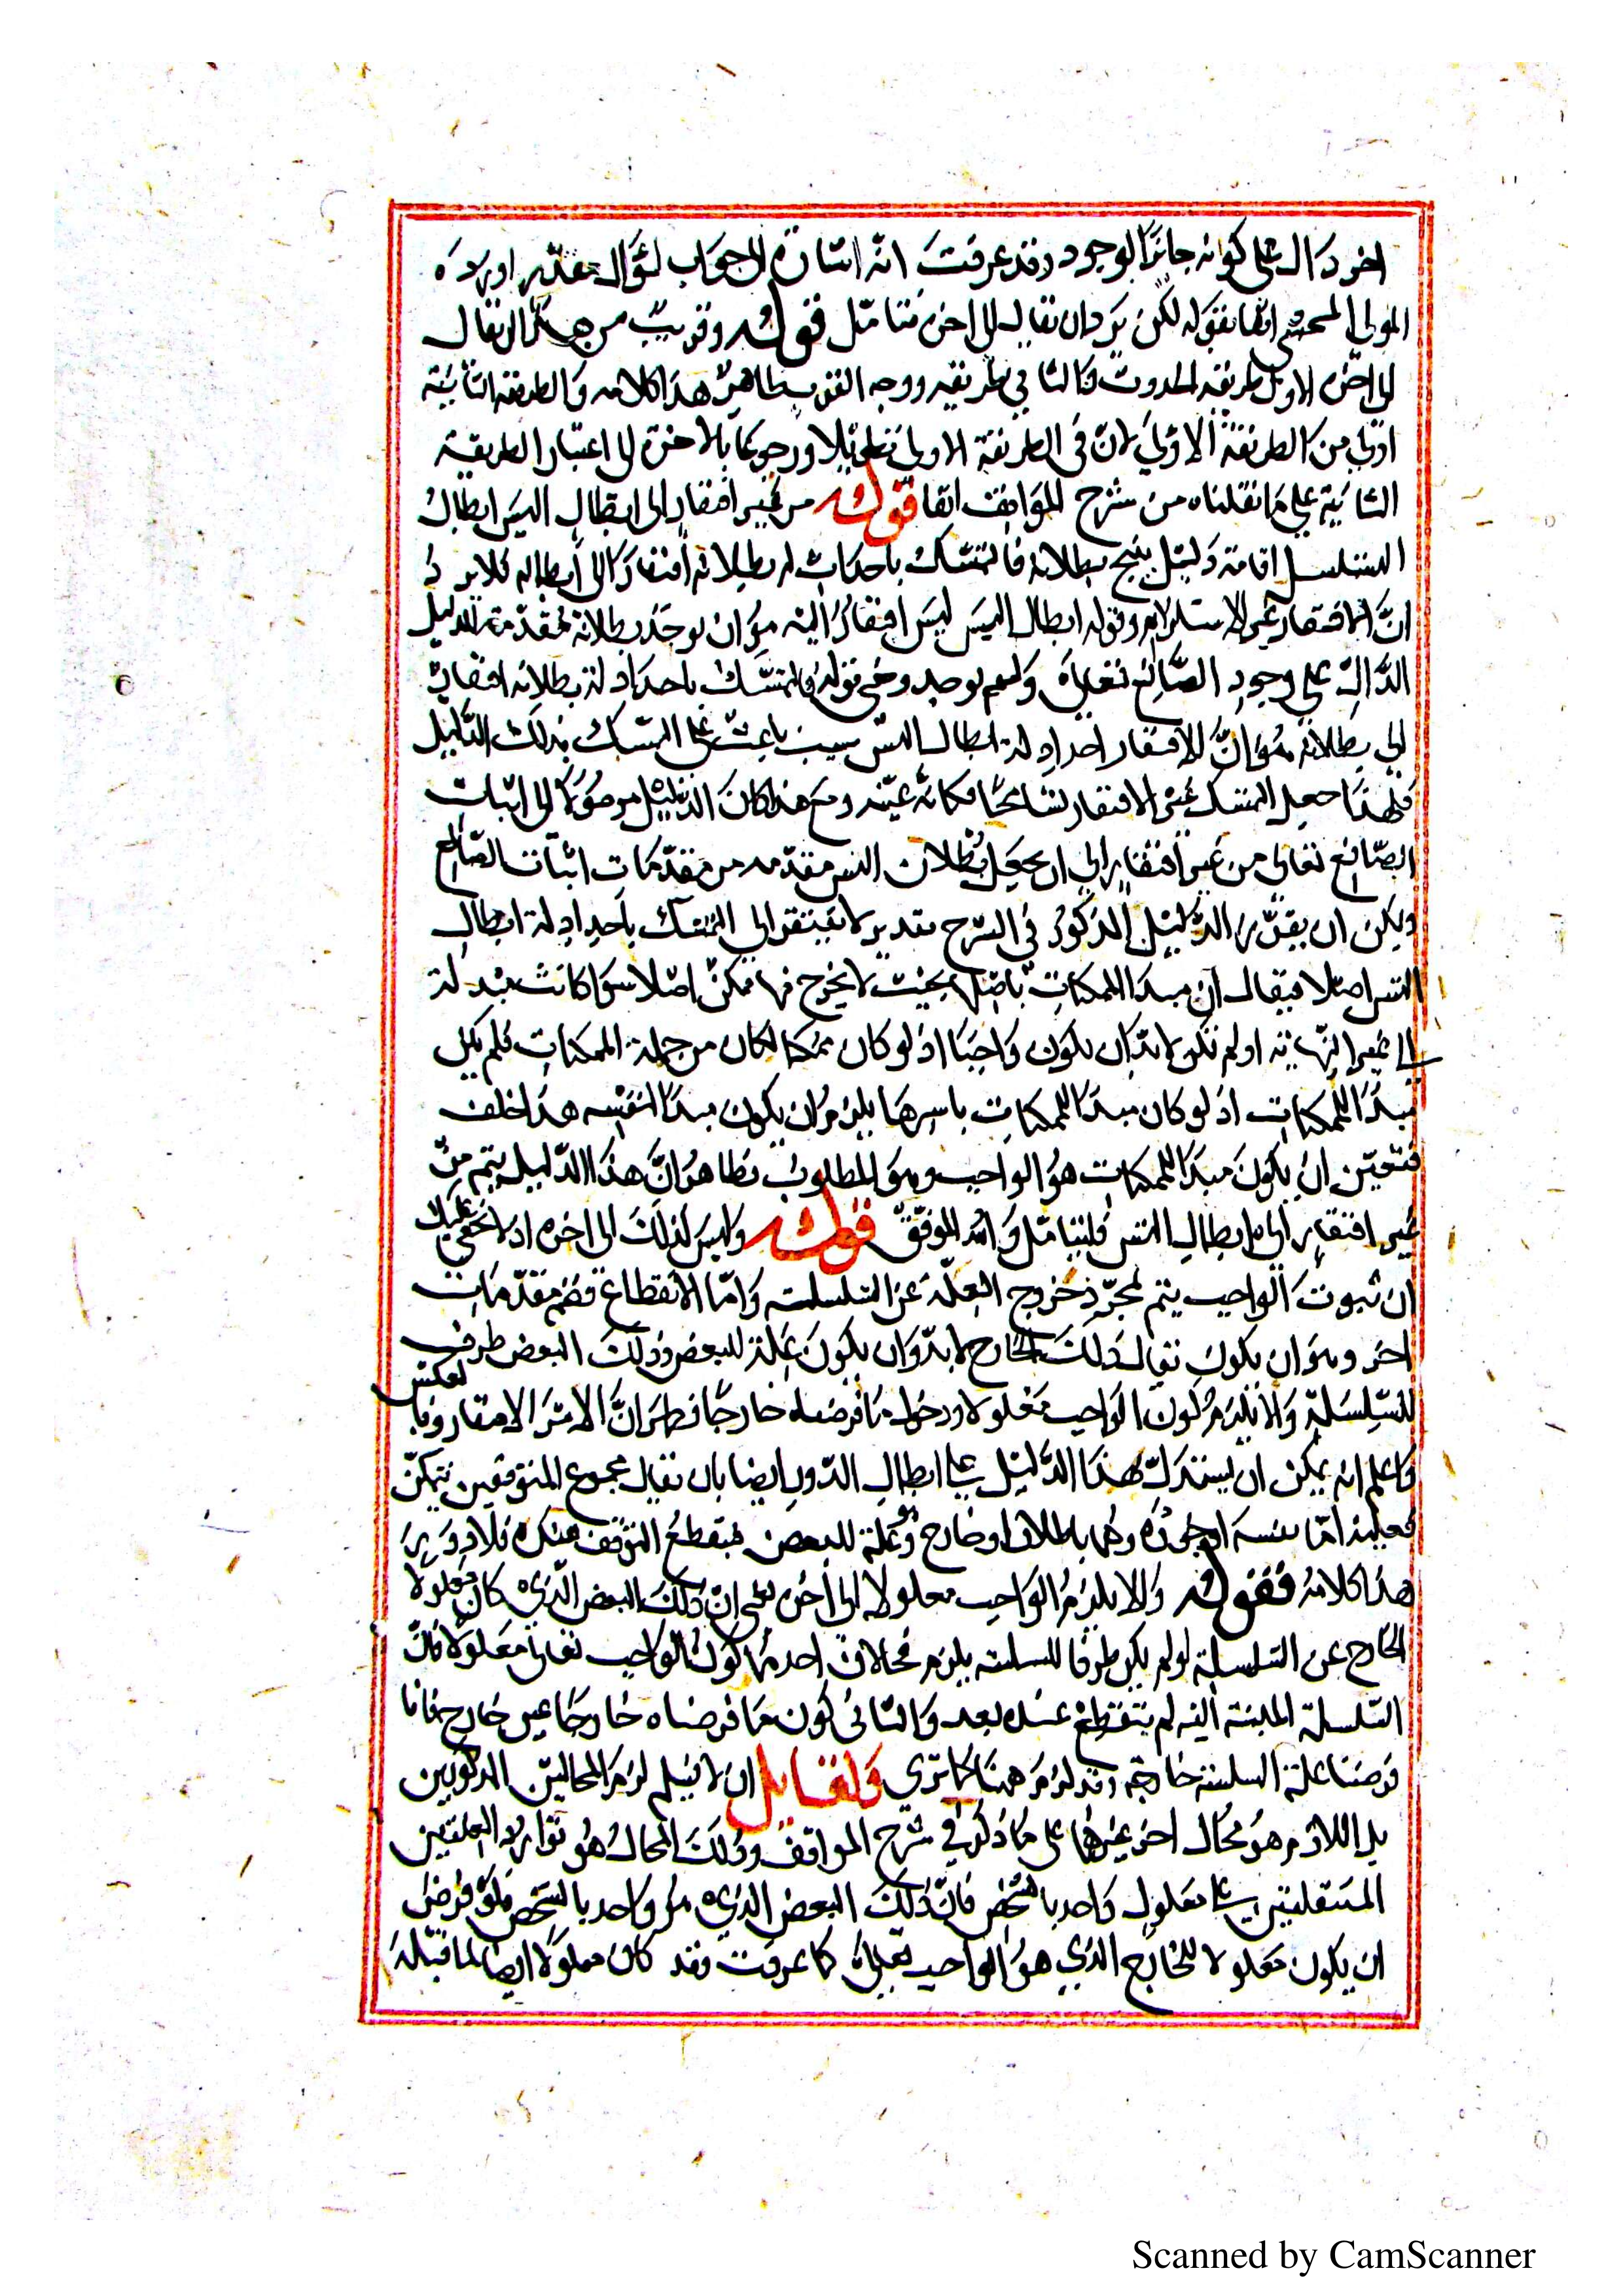 اخر دال على كونه جائز الوجود وقد عرفت انه اشارة الى جواب لسؤال مقدر اورده
المولى المحشي انفا بقوله لكن يرد ان يقال الى اخره فتأمل قوله وقريب من هذا ما يقال
الى اخره الاول طريقة الحدوث والثاني طريقة ووجه القرب ظاهر هذا كلامه والطريقة الثانية
اولى من الطريقة الاولى لان في الطريقة الاولى تطويلا ورجوعا بالاخرة الى اعتبار الطريقة
الثانية على ما نقلناه من شرح المواقف انفا قوله من غير افتقار الى ابطال اليس ابطال
التسلسل اقامة دليل ينتج بطلانه فالتمسك باحد ادلة بطلانه افتقار الى ابطاله فلا يرد
ان الافتقار غير الاستلزام وقوله ابطال اليس ليس افتقارا اليه هو ان يوجد بطلانه مقدمة الدليل
الدال على وجود الصانع تعالى ولم يوجد ومعنى قوله فالتمسك باحد ادلة بطلانه افتقار
الى بطلانه هو ان الافتقار احد ادلة ابطال التس سبب باعث على التمسك بذلك الدليل
فلهذا جعل التمسك عين الافتقار تسامحا فكانه عينه ومع هذا كان الدليل موصولا الى اثبات
الصانع تعالى من غير افتقار الى ان يجعل بطلان التس مقدمة من مقدمات اثبات الصانع
ويمكن ان يقرر الدليل المذكور في الشرح بتقدير لا يفتقر الى التمسك باحد ادلة ابطال
التس اصلا فيقال ان مبدا الممكنات باصلها بحيث لا يخرج منها ممكن اصلا سوا كانت متسلسلة
الى غير النهاية او لم تكن لا بد ان يكون واجبا اذ لو كان ممكنا لكان من جملة الممكنات فلم يكن
مبدا للممكنات اذ لو كان مبدا للممكنات باسرها يلزم ان يكون مبدا لنفسه هذا خلف
فتعين ان يكون مبدا الممكنات هو الواجب وهو المطلوب وظاهر ان هذا الدليل يتم من
غير افتقار الى ابطال التس فليتامل والله الموفق قوله وليس كذلك الى اخره اذ لا يخفى عليك
ان ثبوت الواجب يتم بمجرد خروج العلة عن السلسلة واما الانقطاع فبضم مقدمات
اخر وهو ان يكون يقال ذلك الخارج لا بد وان يكون علة للبعض وذلك البعض طرف
للسلسلة والا يلزم كون الواجب معلولا ودخول ما فرضناه خارجا فظهر ان الامر الافتقار وبالعكس
واعلم انه يمكن ان يستدل بهذا الدليل على ابطال الدور ايضا بان يقال مجموع المتوقفين ممكن
فعلته اما نفسه او جزؤه وهما باطلان او خارج وهو علة للبعض فينقطع التوقف عنده فلا دور
هذا كلامه فقوله والا يلزم الواجب معلولا الى اخره يعني ان ذلك البعض الذي كان معلولا
لخارج عن السلسلة لو لم يكن طرفا للسلسلة يلزم محالان احدهما كون الواجب تعالى معلولا فان
السلسلة المبينة اليه لم ينقطع عنده بعد والثاني كون ما فرضناه خارجا غير خارج فانا
فرضنا علة السلسلة خارجة وقد لزم ههنا كما ترى ولقائل ان لا يسلم لزوم المحالين المذكورين
بل اللازم هو محال اخر غيرهما على ما ذكر في شرح المواقف وذلك المحال هو توارد العلتين
المستقلتين على معلول واحد بالشخص فان ذلك البعض الذي هو واحد بالشخص فلو فرض
ان يكون معلولا للخارج الذي هو الواجب تعالى كما عرفت فقد كان معلولا ايضا لما قبله
Scanned by CamScanner